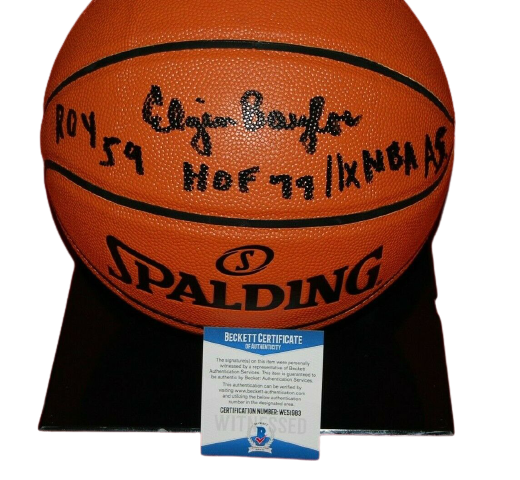 Elgin Baylor
ROY 59
HOF 77 // 11x NBA AS
S
SPALDING
BECKETT CERTIFICATE
OF AUTHENTICITY
The signature(s) on this item were personally
witnessed by a representative of Beckett
Authentication Services. This item is guaranteed to
be authentic by Beckett Authentication Services.
This authentication can be verified by
visiting www.beckett-authentication.com
and utilizing the below authentication
number in the designated area.
CERTIFICATION NUMBER: WE51083
WITNESSED
B